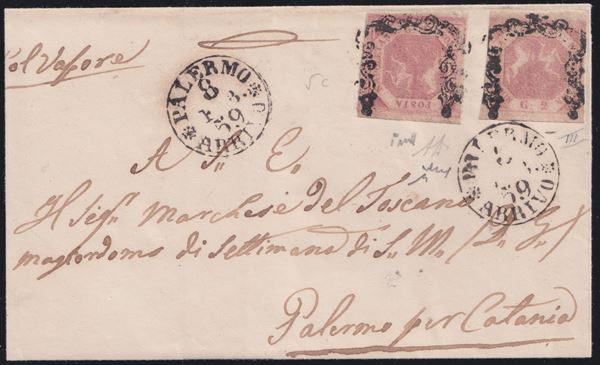 Col Vapore
PALERMO
8
F.B.
59
ARRIVO
POSTA
G. 2
PALERMO
59
ARRIVO
A S. E.
Il Sig.r Marchese del Toscano
magiordomo di Settimana di S. M. (D. G.)
Palermo per Catania
III